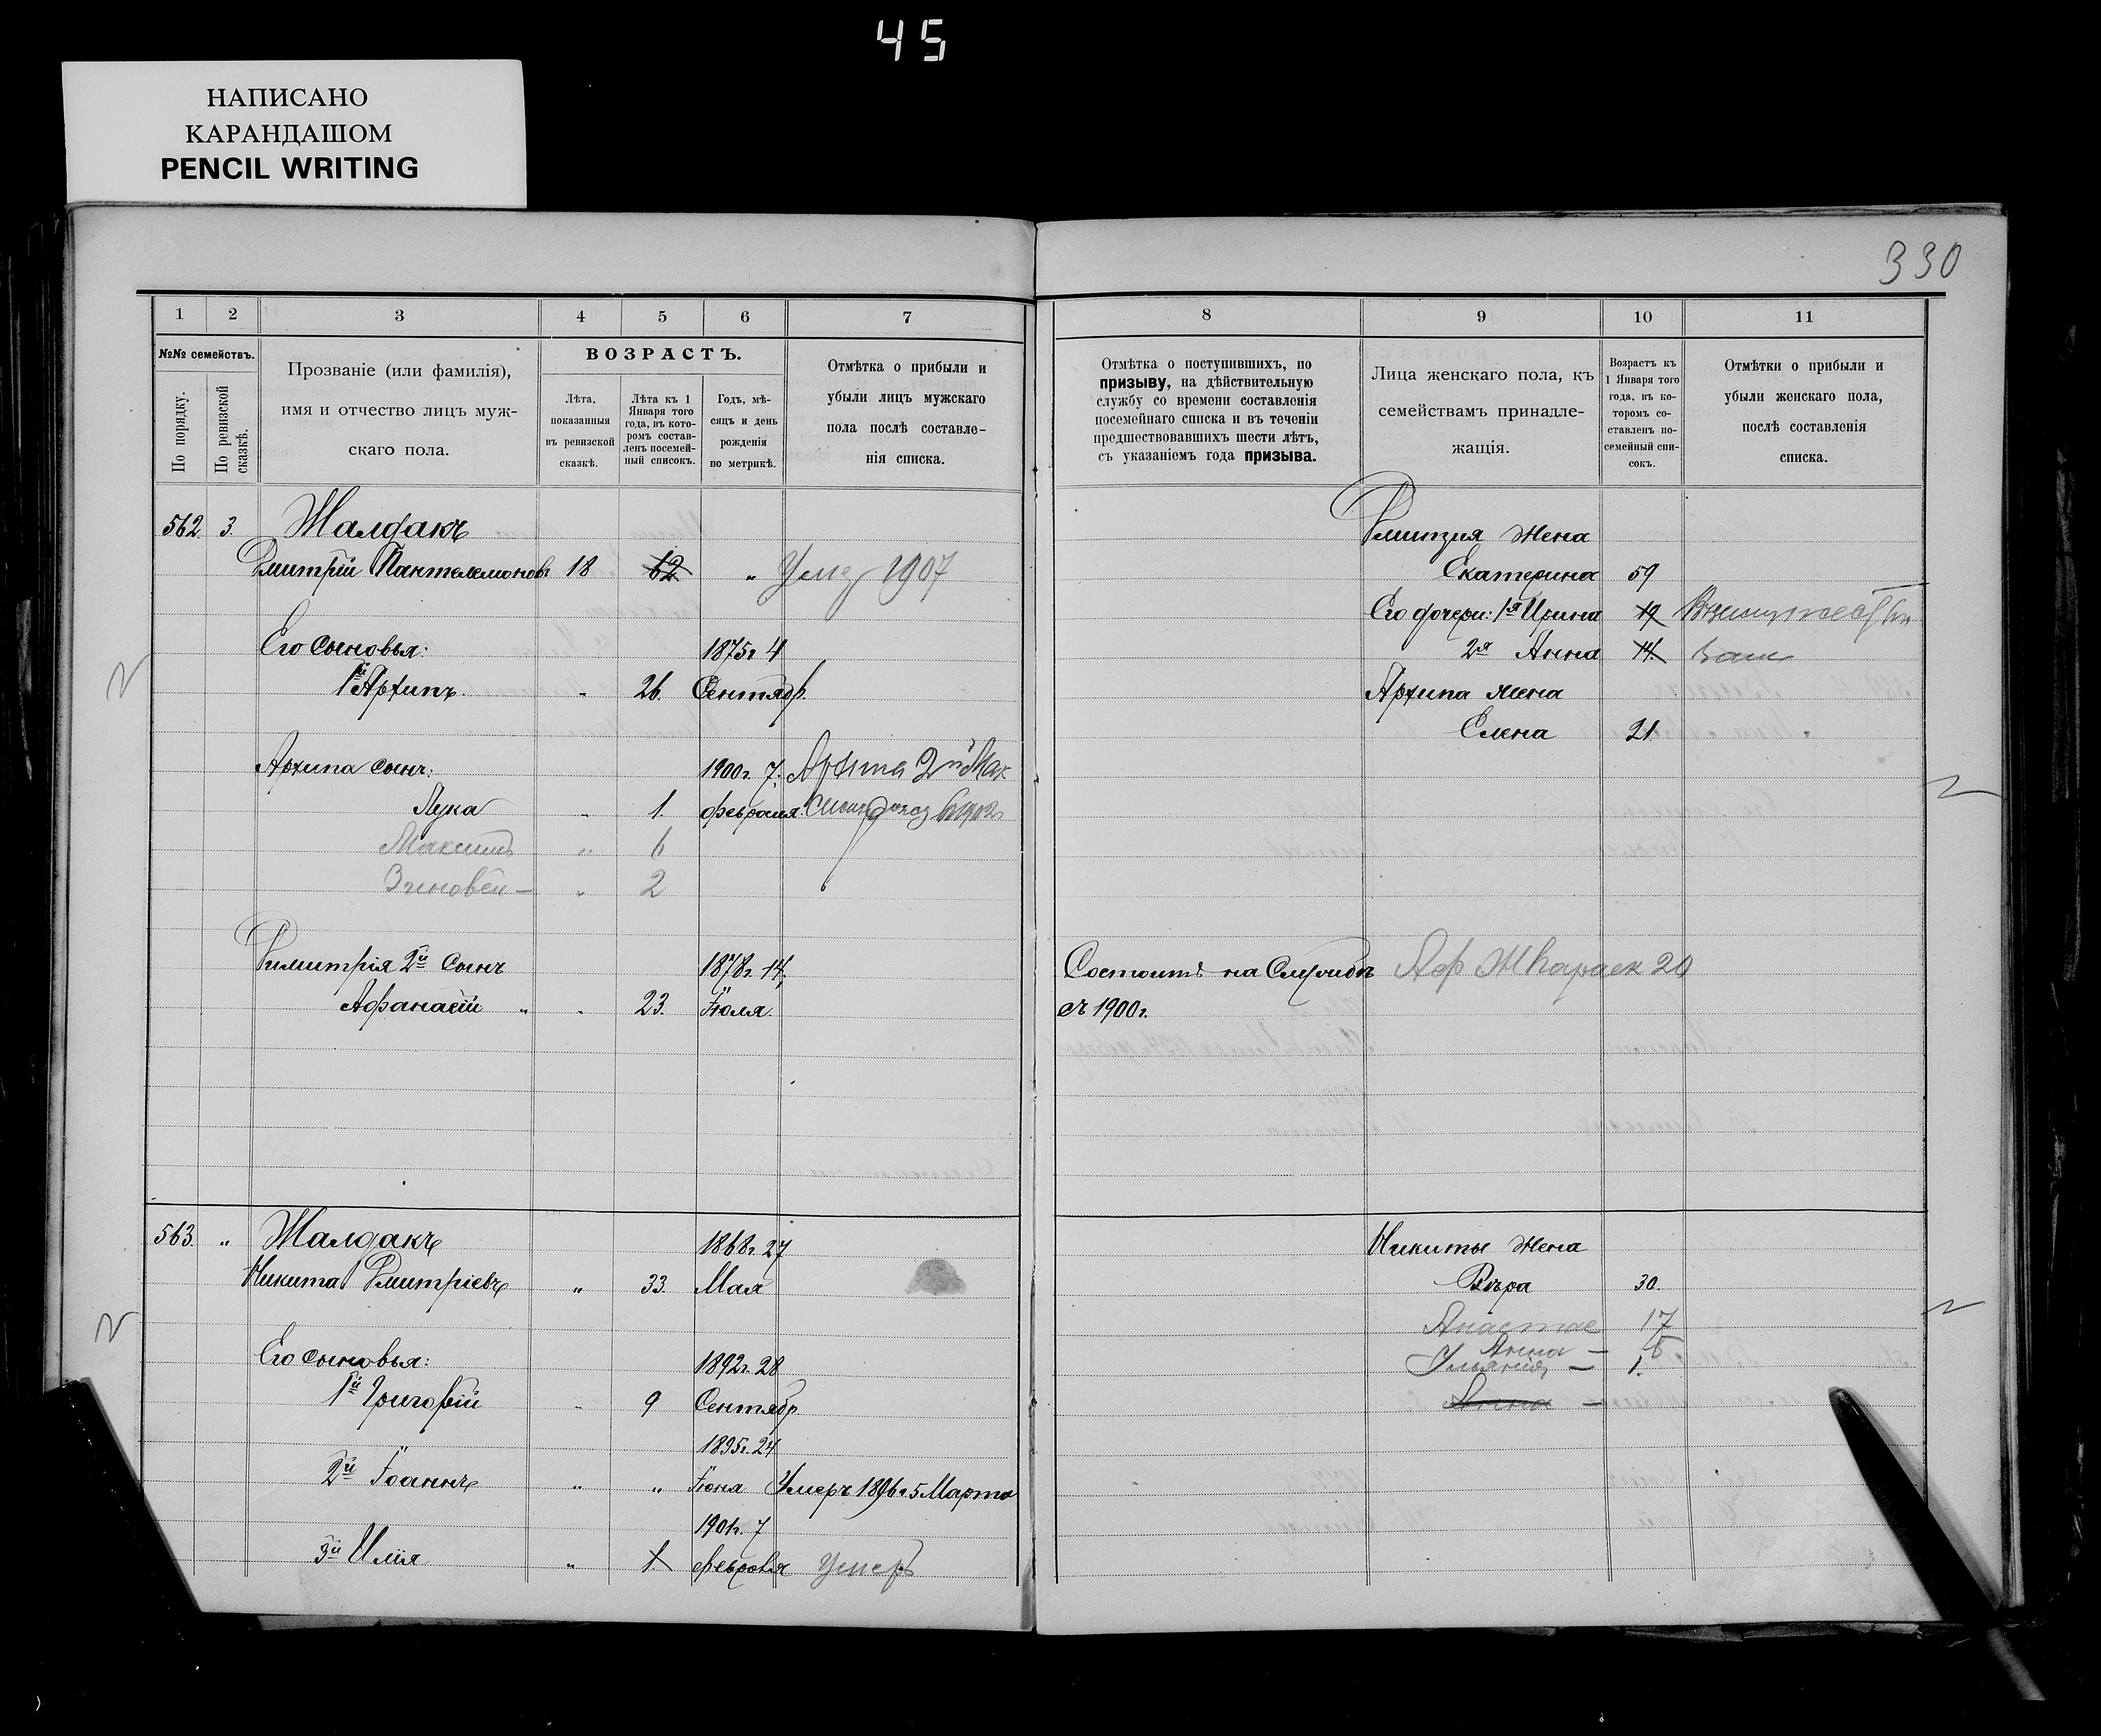 45
НАПИСАНО
КАРАНДАШОМ
PENCIL WRITING
330
1 2 3 4 5 6 7
№№ семействъ.
По порядку.
По ревизской сказкѣ.
Прозваніе (или фамилія),
имя и отчество лицъ муж-
скаго пола.
ВОЗРАСТЪ.
Лѣта,
показанныя
въ ревизской
сказкѣ.
Лѣта къ 1
Января того
года, въ кото-
ромъ состав-
ленъ посемей-
ный списокъ.
Годъ, мѣ-
сяцъ и день
рожденія
по метрикѣ.
Отмѣтка о прибыли и
убыли лицъ мужскаго
пола послѣ составле-
нія списка.
562. 3. Жалдакъ
Дмитрій Пантелемоновъ 18 62 " 1907
Его сыновья: 1875г. 4
1й Архипъ. " 26. Сентябр.
Архипа сынъ: 1900г. 7. Архипа 2й Мак
Лука " 1. февраля.
Максимъ " 6
Зиновей — " 2
Димитрія 2й Сынъ 1878г. 14,
Афанасій " " 23. Іюля.
563. " Жалдакъ 1868г. 27
Никита Дмитріевъ " 33. Мая
Его сыновья: 1892г. 28
1й Григорій " 9 Сентябр.
1895г. 24
2й Іоаннъ " " Іюня Умеръ 1896г 5 Марта
1901г. 7
3й Илія " 1. февраля умеръ
8 9 10 11
Отмѣтка о поступившихъ, по
призыву, на дѣйствительную
службу со времени составленія
посемейнаго списка и въ теченіи
предшествовавшихъ шести лѣтъ,
съ указаніемъ года призыва.
Лица женскаго пола, къ
семействамъ принадле-
жащія.
Возрастъ къ
1 Января того
года, въ ко-
торомъ со-
ставленъ по-
семейный спи-
сокъ.
Отмѣтки о прибыли и
убыли женскаго пола,
послѣ составленія
списка.
Дмитрія жена
Екатерина 59
Его дочери: 1я Ирина 19
2я Анна 14.
Архипа жена
Елена 21.
Состоитъ на Службѣ Аф 20
съ 1900г.
Никиты жена
Вѣра 30.
Анастас 17
Анна —
Ульянія — 1.
Анна —